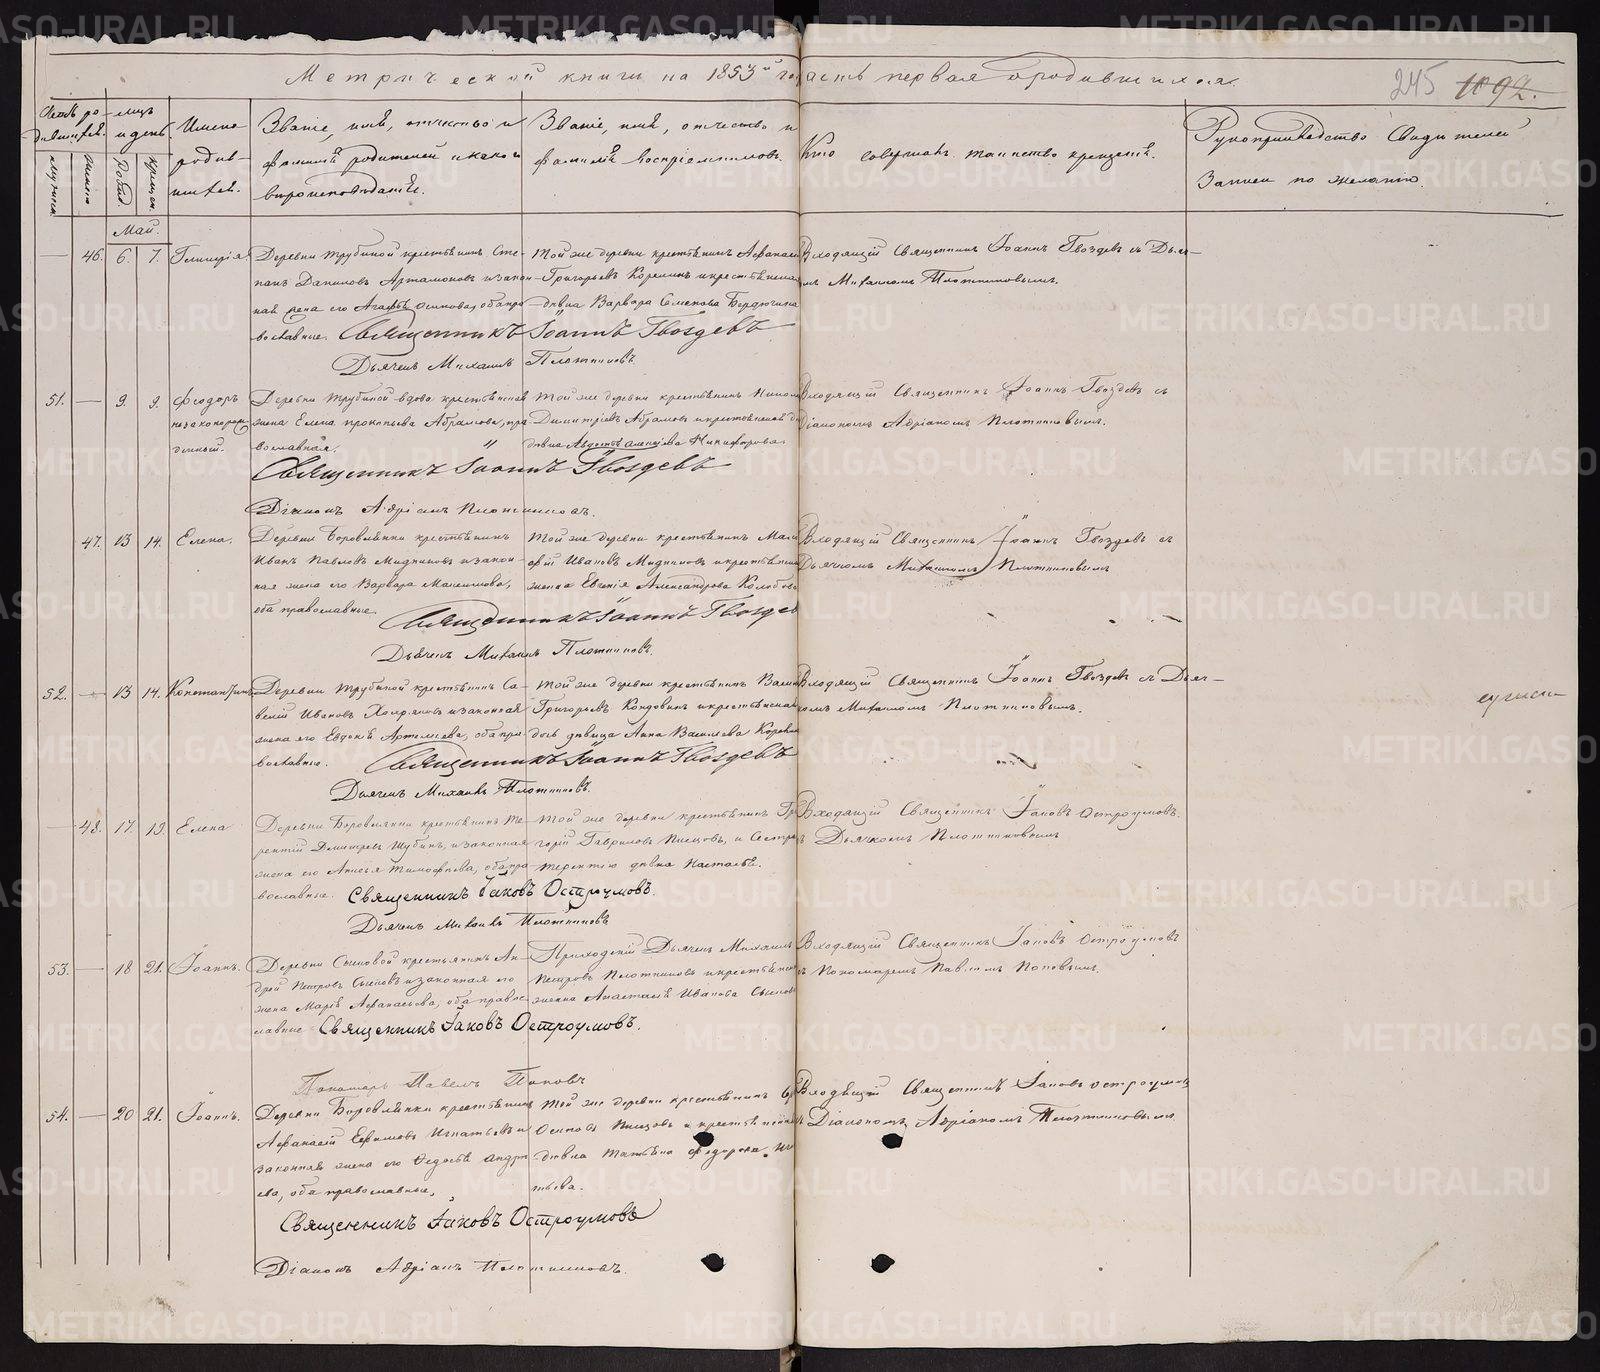 Метрической книги на 1853й годъ часть первая о родившихся.
245 1092.
Счетъ родившихся.
мужеска
женска
Мѣсяцъ и день.
рожденія
крещенія
Имена родившихся.
Званіе, имя, отчество и фамилія родителей и какого вѣроисповѣданія.
Званіе, имя, отчество и фамилія воспріемниковъ.
Кто совершалъ таинство крещенія.
Рукоприкладство свидѣтелей записи по желанію.
Май.
46. 6. 7. Гликерія
Деревни Трубиной крестьянинъ Сте-
панъ Даниловъ Артамоновъ и закон-
ная жена его Агафья Осипова, оба пра-
вославные.
Той же деревни крестьянинъ Афанасій
Григорьевъ Корелинъ и крестьянская
дѣвка Варвара Семенова Бердюгина
Входящій Священникъ Іоаннъ Гвоздевъ съ Дьяч-
комъ Михаиломъ Плотниковымъ.
Священникъ Іоаннъ Гвоздевъ
Дьячекъ Михаилъ Плотниковъ.
51. 9. 9. Феодоръ
незаконорож-
денный.
Деревни Трубиной вдова крестьянская
жена Елена Прокопьева Абрамова, пра-
вославная.
Той же деревни крестьянинъ Никола
Димитріевъ Абрамовъ и крестьянская
дѣвка Авдотья Алексѣева Никифорова
Входящій Священникъ Іоаннъ Гвоздевъ съ
Діакономъ Адріаномъ Плотниковымъ.
Священникъ Іоаннъ Гвоздевъ
Діаконъ Адріанъ Плотниковъ.
47. 13 14. Елена.
Деревни Боровлянки крестьянинъ
Иванъ Павловъ Мидниковъ и закон-
ная жена его Варвара Максимова,
оба православные.
Той же деревни крестьянинъ
Ивановъ Мидниковъ и крестьянская
женка Евгенія Александрова
Входящій Священникъ Іоаннъ Гвоздевъ съ
Дьячкомъ Михаиломъ Плотниковымъ
Священникъ Іоаннъ Гвоздев
Дьячекъ Михаилъ Плотниковъ.
52. 13 14. Константинъ
Деревни Трубиной крестьянинъ Са-
велій Ивановъ и законная
жена его Евдокія Артемьева, оба пра-
вославные.
Той же деревни крестьянинъ Васил
Григорьевъ и крестьянская
дочь дѣвица Анна Васильева
Входящій Священникъ Іоаннъ Гвоздевъ съ Дьяч-
комъ Михаиломъ Плотниковымъ.
Священникъ Іоаннъ Гвоздевъ
Дьячекъ Михаилъ Плотниковъ.
48. 17. 19. Елена
Деревни Боровлянки крестьянинъ Те-
рентій Дмитріевъ Шубинъ, и законная
жена его Анисья Тимофеева, оба пра-
вославные.
Той же деревни крестьянинъ Гри
горій Гавриловъ Пшецовъ, и Сестра
Терентію дѣвка Настасья.
Входящій Священникъ Іаковъ Остроумовъ.
съ Дьячкомъ Плотниковымъ
Священникъ Іаковъ Остроумовъ.
Дьячекъ Михаилъ Плотниковъ
53. 18 21. Іоаннъ.
Деревни Сысковой крестьянинъ Ан-
дрей Петровъ и законная его
жена Марія Афанасьева, оба право-
славные
Приходскій Дьячекъ Михаилъ
Петровъ Плотниковъ и крестьянская
женка Анастасія Иванова
Входящій Священникъ Іаковъ Остроумовъ
съ Пономаремъ Павломъ Поповымъ.
Священникъ Іаковъ Остроумовъ.
Пономарь Павелъ Поповъ
54. 20 21. Іоаннъ.
Деревни Боровлянки крестьянинъ
Афанасій Ефимовъ Игнатьевъ и
законная жена его Федосья Андре
ева, оба православные.
Той же деревни крестьянинъ
Осиповъ Пшецовъ и крестьянская
дѣвка Татьяна Федорова Иг
тьева.
Входящій Священникъ Іаковъ Остроумов
съ Діакономъ Адріаномъ Плотниковымъ
Священникъ Іаковъ Остроумовъ
Діаконъ Адріанъ Плотниковъ.
METRIKI.GASO-URAL.RU